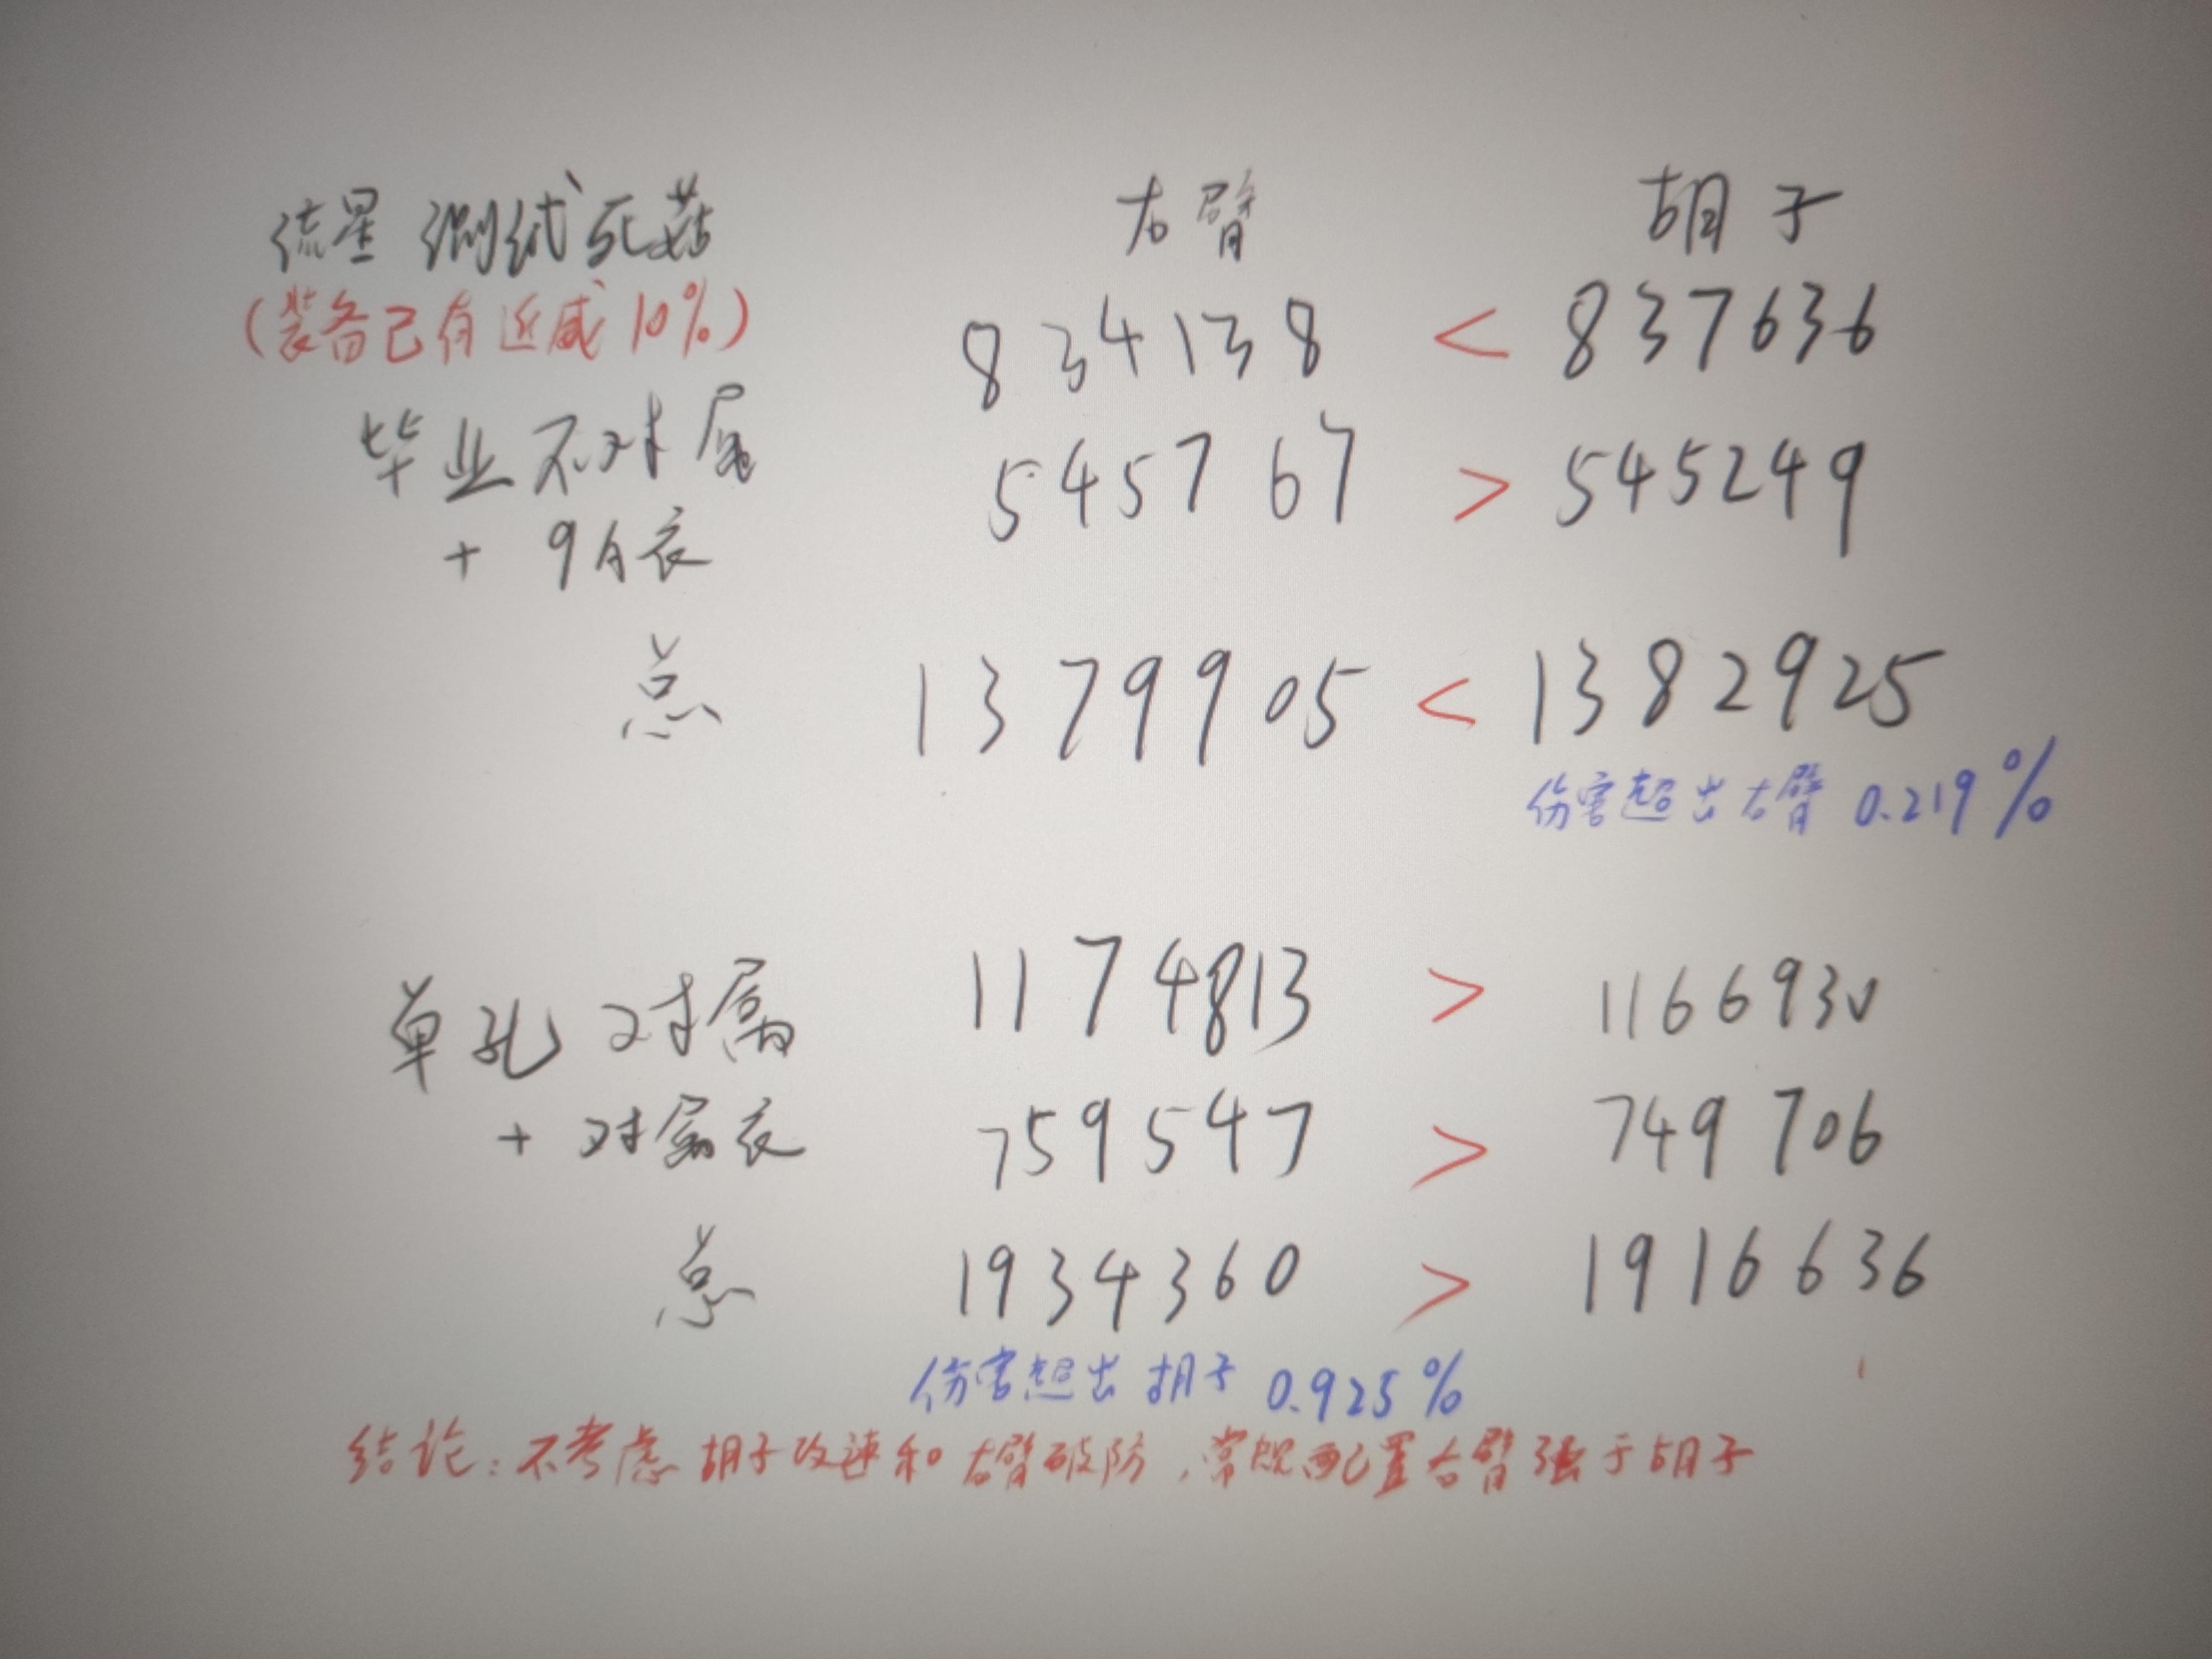 流星 测试死菇 右臂 胡子
(装备已有近威10%) 834138 < 837636
毕业不对属 545767 > 545249
+ 9月衣
总 1379905 < 1382925
伤害超出右臂 0.219%
单孔对属 1174813 > 1166930
+ 对属衣 759547 > 749706
总 1934360 > 1916636
伤害超出胡子 0.925%
结论:不考虑胡子攻速和右臂破防,常规配置右臂强于胡子